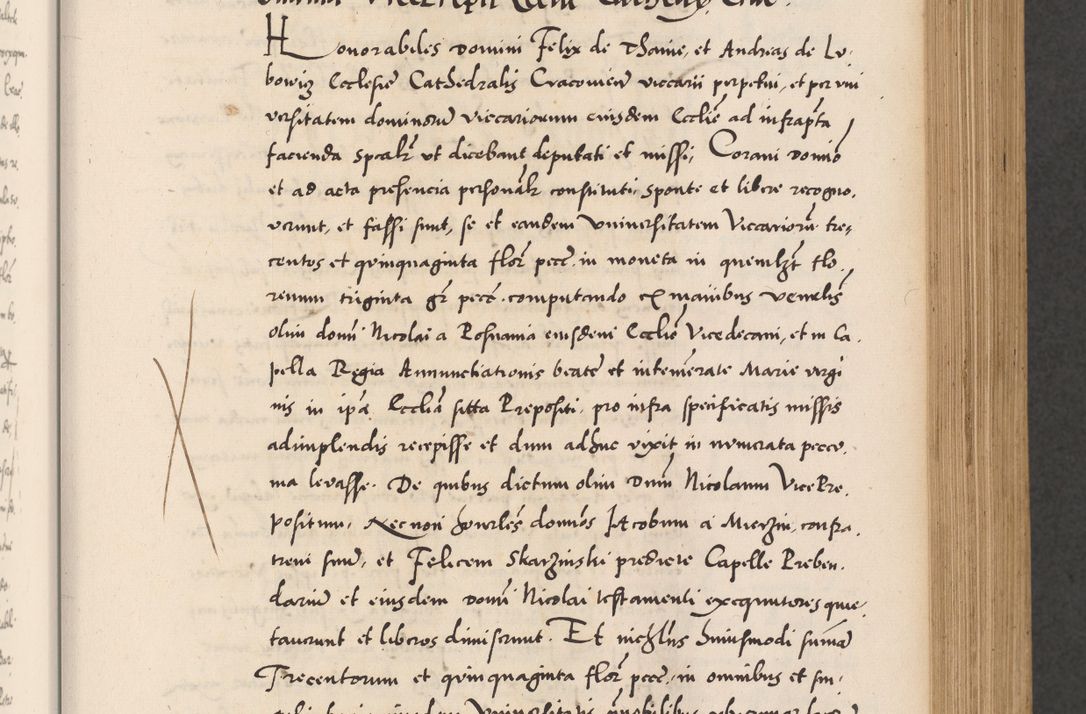 Honorabiles domini Felix de Thanie, et Andreas de Lu-
bowiz Ecclesie Cathedralis Cracovien viccarii perpetui, et per uni
versitatem dominorum viccariorum eiusdem Ecclie ad infrapta
facienda spcalr ut dicebant deputati et missi, Coram domio
et ad acta presencia personalr constituti sponte et libere recogno-
verunt, et fassi sunt, se et eandem Universitatem Viccariorum tre-
centos et quinquaginta flor pecc in moneta in quemlzt flo-
renum triginta gr pecc computando ex manibus venrlis
olim domi Nicolai a Posnania eiusdem Ecclie Vicedecani, et in Ca-
pella Regia Annunctiationis beate et intemerate Marie virgi
nis in ipa Ecclia sitta Prepositi, pro infra specificatis missis
adimplendis recepisse et dum adhuc vixit in numerata peccu-
nia levasse. De quibus dictum olim Dnm Nicolaum VicePre-
positum, Necnon honrles domios Jacobum a Mierzin, confra-
trem suum, et Felicem Skarzinski prediete Capelle Preben-
darium et eiusdem domi Nicolai testamenti exequutores quie-
taverunt et liberos dimiserunt. Et nichlus huiusmodi sumam
Trecentorum et quinquaginta flor pecc, in omnibus et sin-